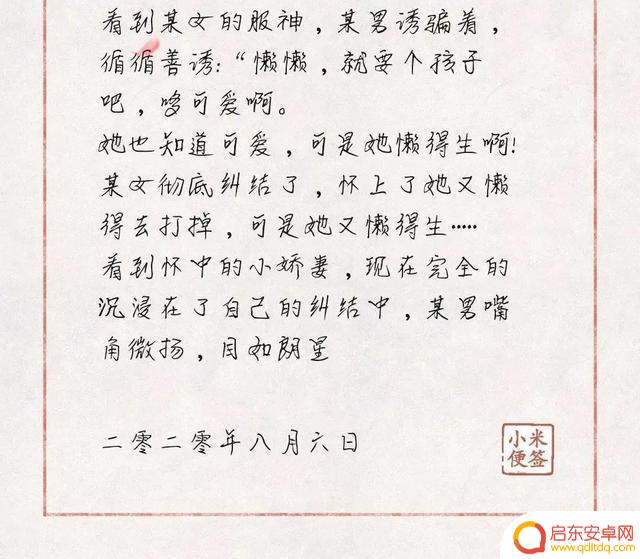 看到某女的服神，某男诱骗着，
循循善诱：“懒懒，就要个孩子
吧，多可爱啊。
她也知道可爱，可是她懒得生啊！
某女彻底纠结了，怀上了她又懒
得去打掉，可是她又懒得生……
看到怀中的小娇妻，现在完全的
沉浸在了自己的纠结中，某男嘴
角微扬，目如朗星
二零二零年八月六日
小米
便签
启东安卓网
www.qdltdq.com